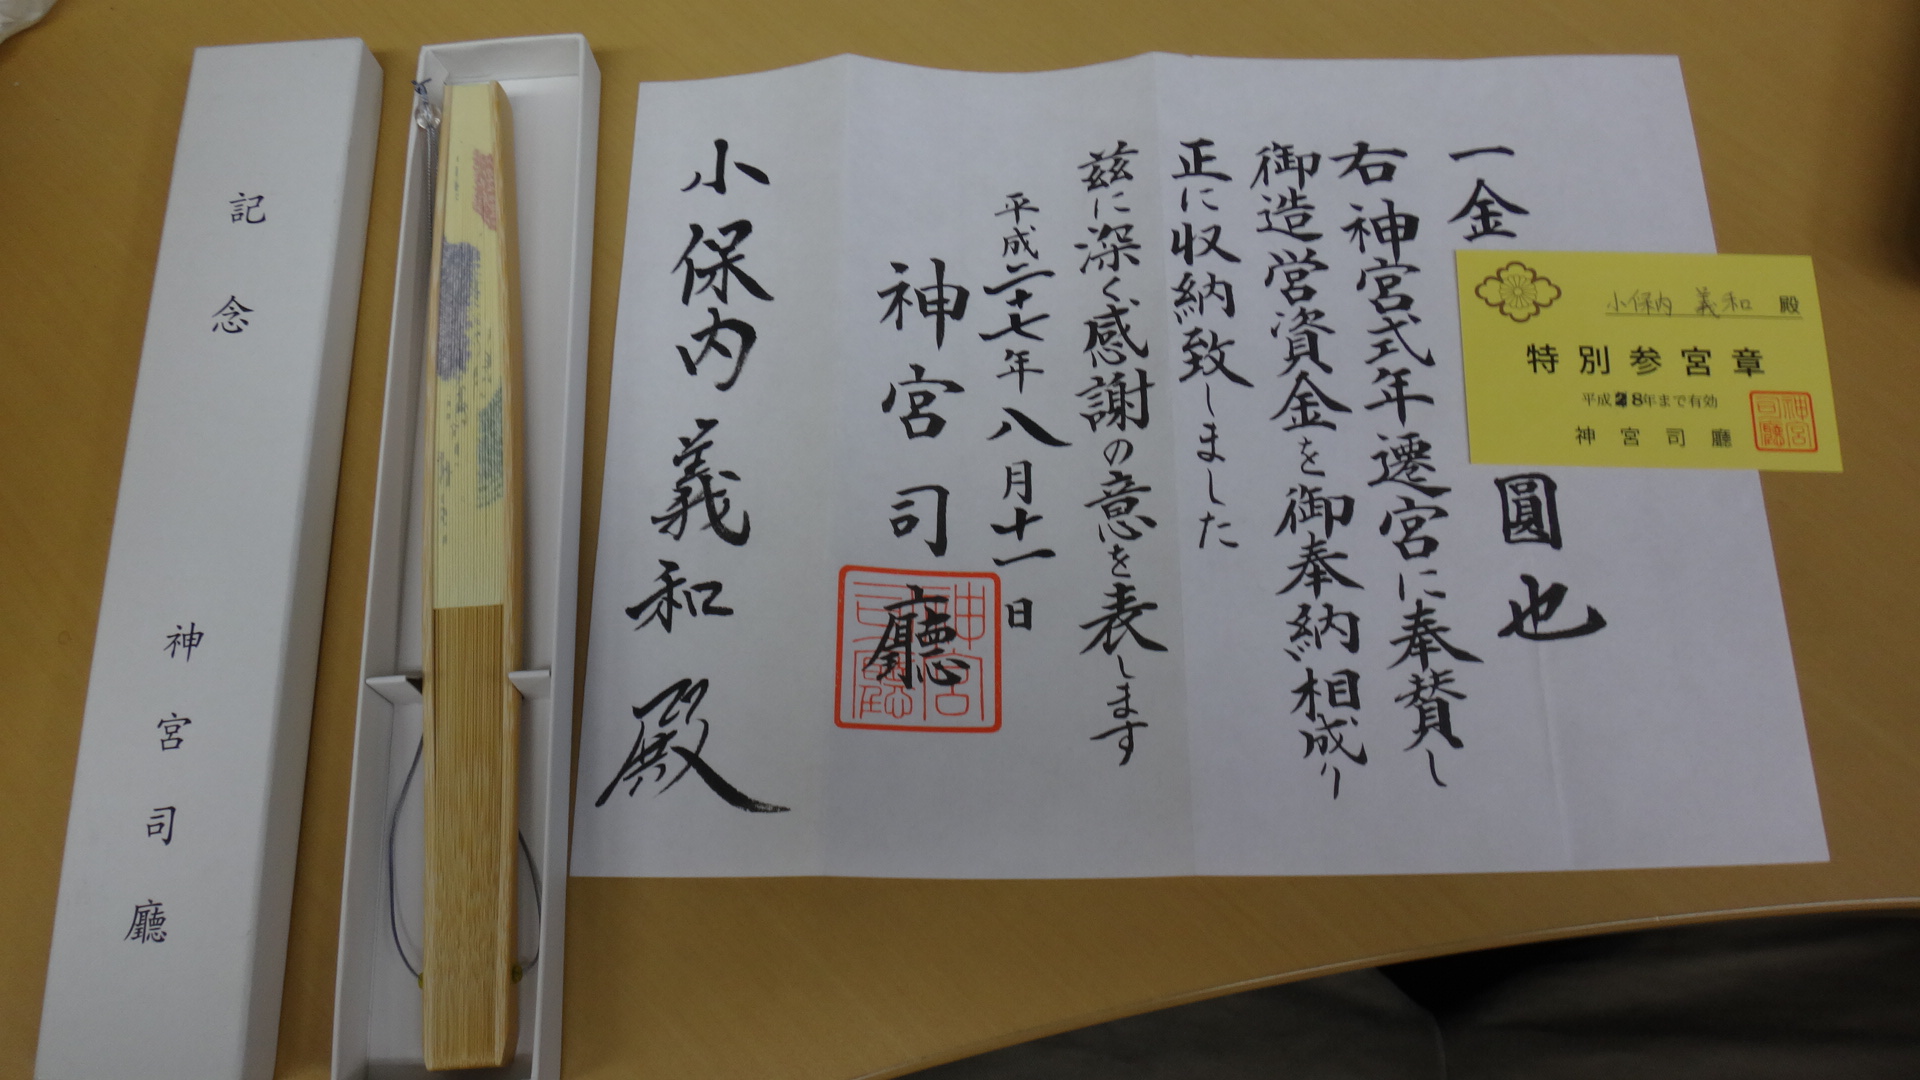 一金
圓也
右神宮式年遷宮に奉賛し
御造営資金を御奉納相成り
正に収納致しました
茲に深く感謝の意を表します
平成二十七年八月十一日
神宮司廳
小保内義和殿
小保内 義和 殿
特別参宮章
平成28年まで有効
神宮司廳
神宮司廳
記念
神宮司廳